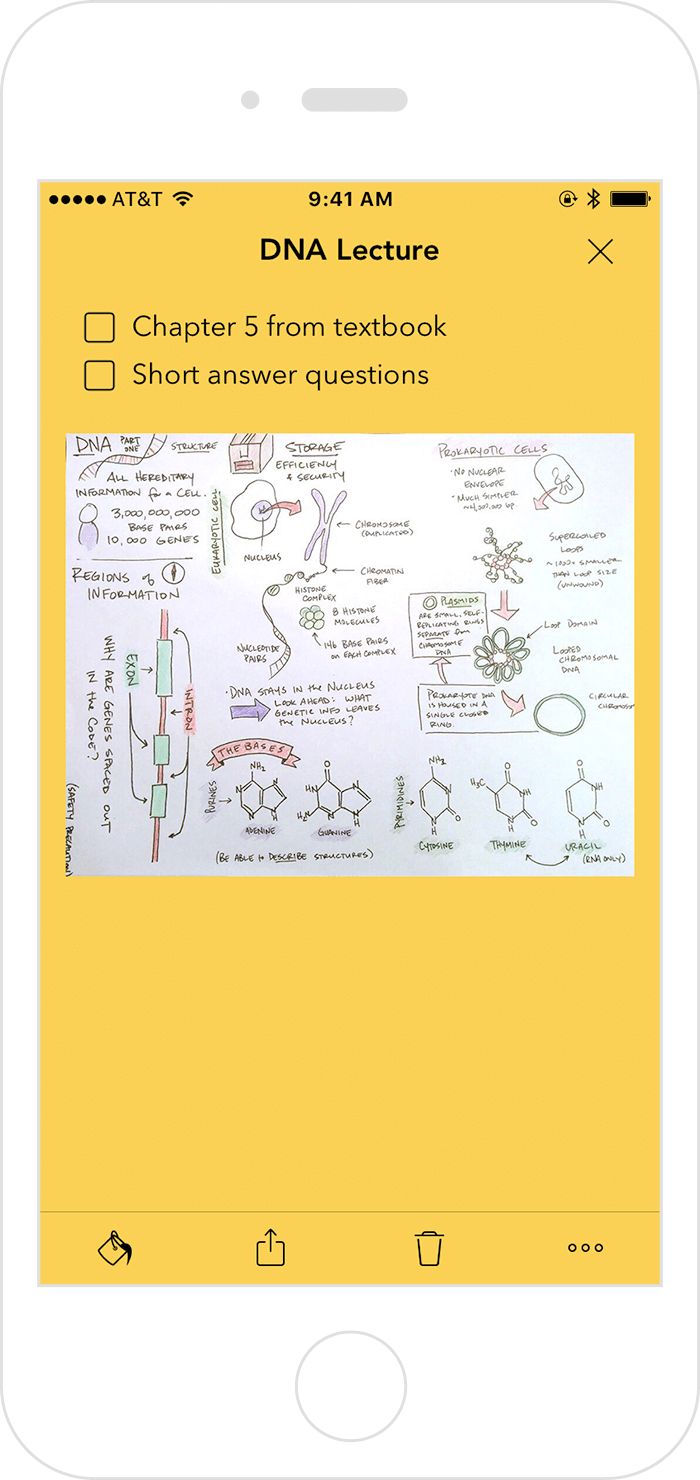 AT&T
9:41 AM
DNA Lecture
Chapter 5 from textbook
Short answer questions
DNA PART ONE
STRUCTURE
ALL HEREDITARY
INFORMATION for a CELL.
3,000,000,000
BASE PAIRS
10,000 GENES
REGIONS of
INFORMATION
WHY ARE GENES SPACED OUT
IN the CODE?
(SAFETY PRECAUTION)
EXON
INTRON
STORAGE
EFFICIENCY
& SECURITY
EUKARYOTIC CELL
NUCLEUS
CHROMOSOME
(DUPLICATED)
CHROMATIN
FIBER
HISTONE
COMPLEX
8 HISTONE
MOLECULES
146 BASE PAIRS
on EACH COMPLEX
NUCLEOTIDE
PAIRS
·DNA STAYS IN the NUCLEUS
LOOK AHEAD: WHAT
GENETIC INFO LEAVES
the NUCLEUS?
PROKARYOTIC CELLS
·NO NUCLEAR
ENVELOPE
·MUCH SIMPLER
~4,000,000 bp
SUPERCOILED
LOOPS
~1000x SMALLER
THAN LOOP SIZE
(UNWOUND)
PLASMIDS
ARE SMALL, SELF-
REPLICATING RINGS
SEPARATE from
CHROMOSOME
DNA
LOOP DOMAIN
LOOPED
CHROMOSOMAL
DNA
PROKARYOTE DNA
IS HOUSED IN A
SINGLE CLOSED
RING.
CIRCULAR
CHROMOSO
THE BASES
PURINES
NH₂
N
N
N
N
H
ADENINE
O
HN
H₂N
N
N
N
H
GUANINE
PYRIMIDINES
NH₂
N
N
H
O
CYTOSINE
H₃C
O
NH
N
H
O
THYMINE
O
NH
N
H
O
URACIL
(RNA ONLY)
(BE ABLE to DESCRIBE STRUCTURES)